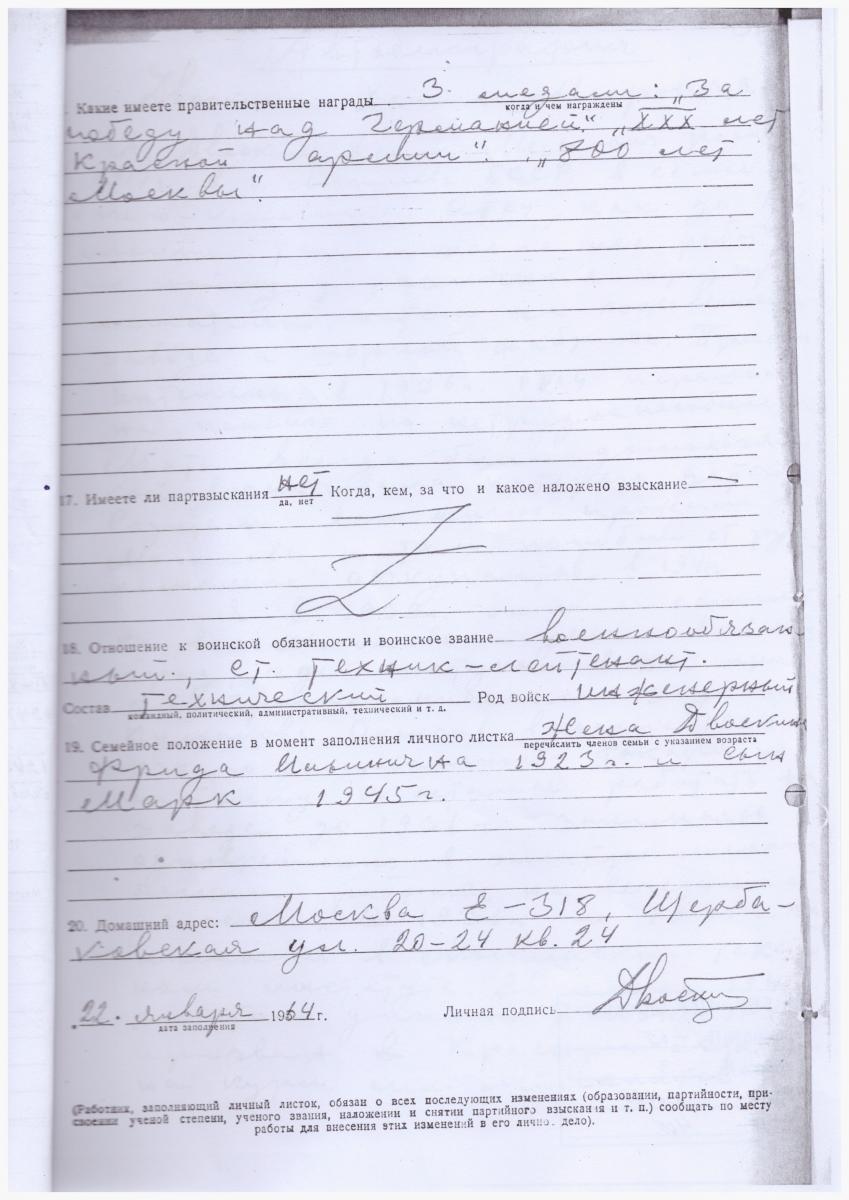 Какие имеете правительственные награды 3 медали: „За
когда и чем награждены
победу над Германией". „XXX лет
Красной армии". „800 лет
Москвы".
17. Имеете ли партвзыскания нет Когда, кем, за что и какое наложено взыскание —
да, нет
Z
18. Отношение к воинской обязанности и воинское звание военнообязан-
ный., ст. техник-лейтенант.
Состав технический Род войск инженерный
командный, политический, административный, технический и т. д.
19. Семейное положение в момент заполнения личного листка Жена Двоскина
перечислить членов семьи с указанием возраста
Фрида Ильинична 1923 г. и сын
Марк 1945 г.
20. Домашний адрес: Москва Е-318, Щерба-
ковская ул. 20-24 кв. 24
22. января 1964 г. Личная подпись
дата заполнения
(Работник, заполняющий личный листок, обязан о всех последующих изменениях (образовании, партийности, при-
своении ученой степени, ученого звания, наложении и снятии партийного взыскания и т. п.) сообщать по месту
работы для внесения этих изменений в его личн. дело).